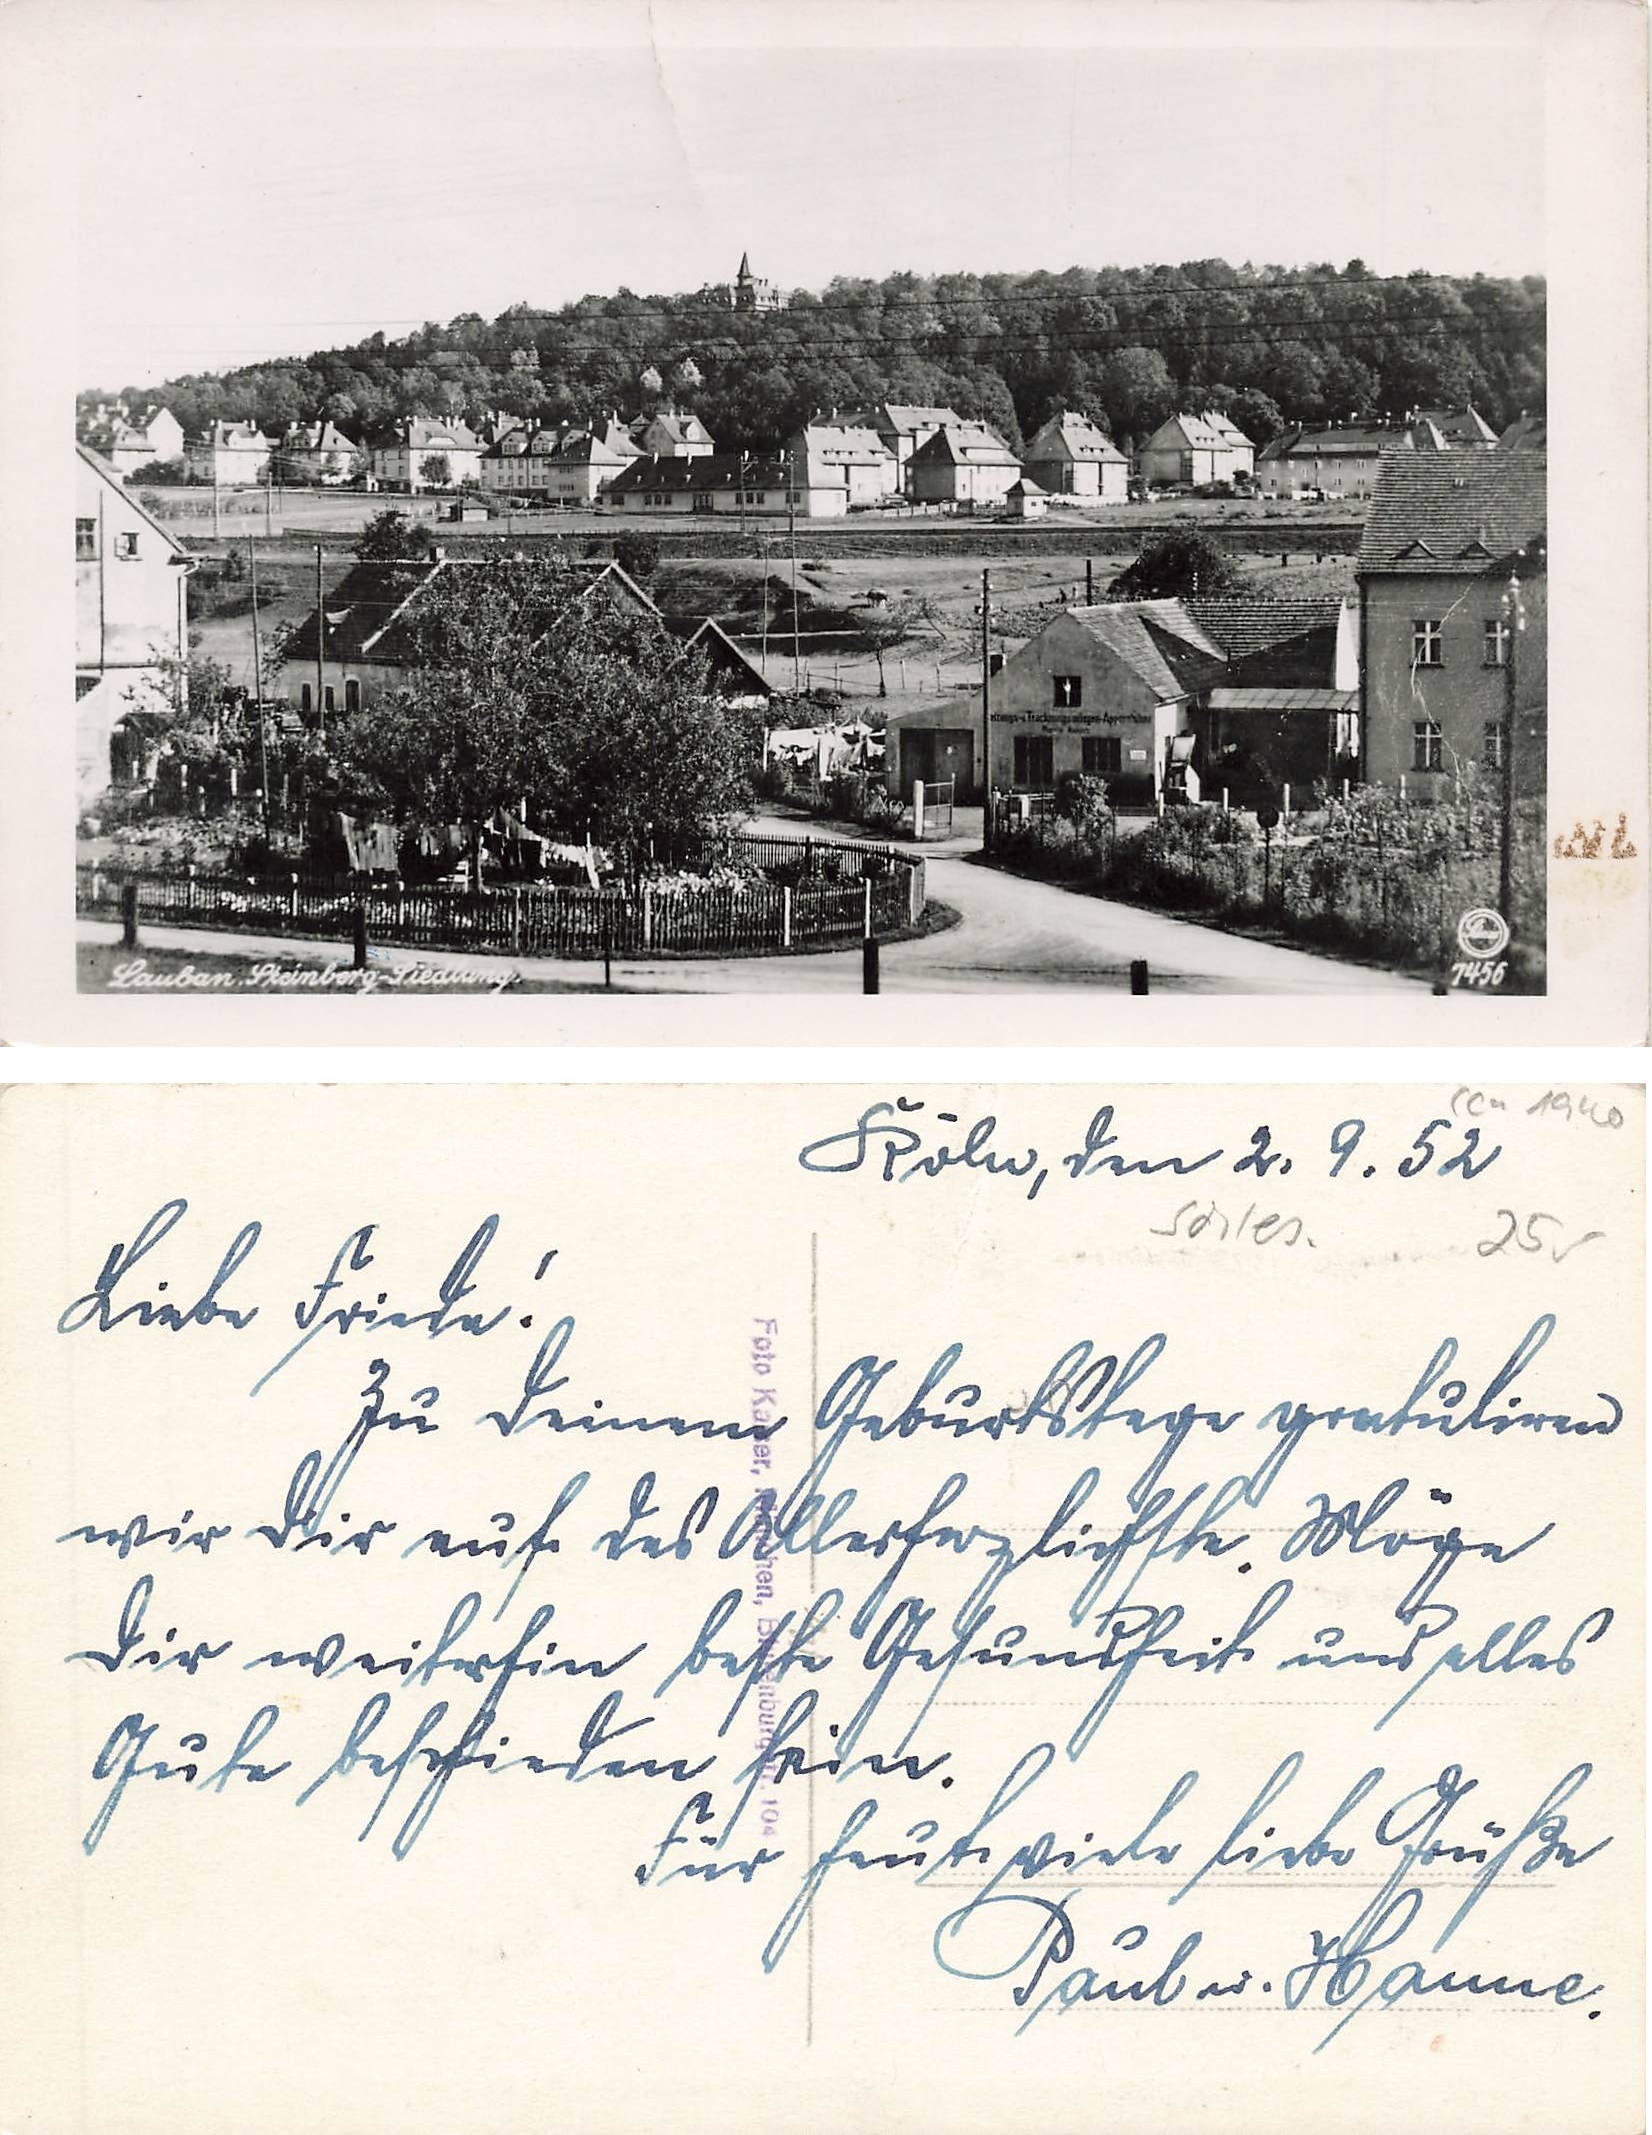 Trocknungsanlagen-Apparatebau
Lauban. Steinberg-Siedlung.
7456
1940
Köln, den 2. 9. 52
25
Liebe Frieda!
Zu Deinem Geburtstage gratuliren
wir Dir auf das Allerherzlichste. Möge
Dir weiterhin beste Gesundheit und alles
Gute beschieden sein.
Für heute viele liebe Grüße
Paul u. Hanne.
Foto Kaiser, München, 104